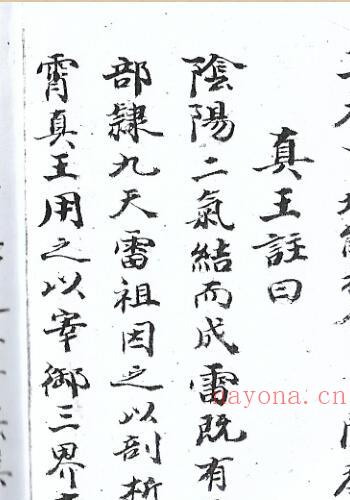 真王註曰
陰陽二氣結而成雷既有
部隸九天雷祖因之以剖析
霄真王用之以宰御三界
nayona.cn